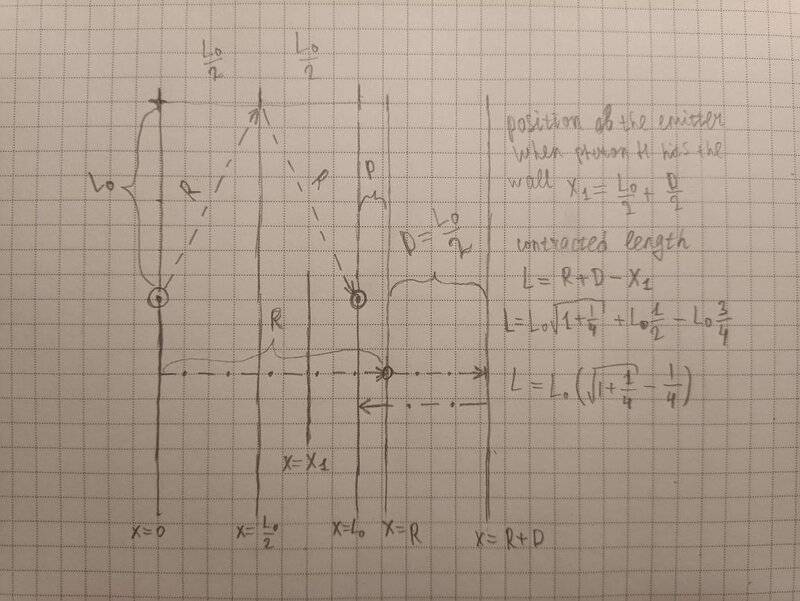 L₀/2 L₀/2
L₀
R
R
D
D = L₀/2
R
x = x₁
x=0
x = L₀/2
x=L₀
x = R
x = R+D
position of the emitter
when photon H has the
wall x₁ = L₀/2 + D/2
contracted length
L = R + D − x₁
L = L₀√(1+1/4) + L₀ 1/2 − L₀ 3/4
L = L₀ (√(1+1/4) − 1/4)